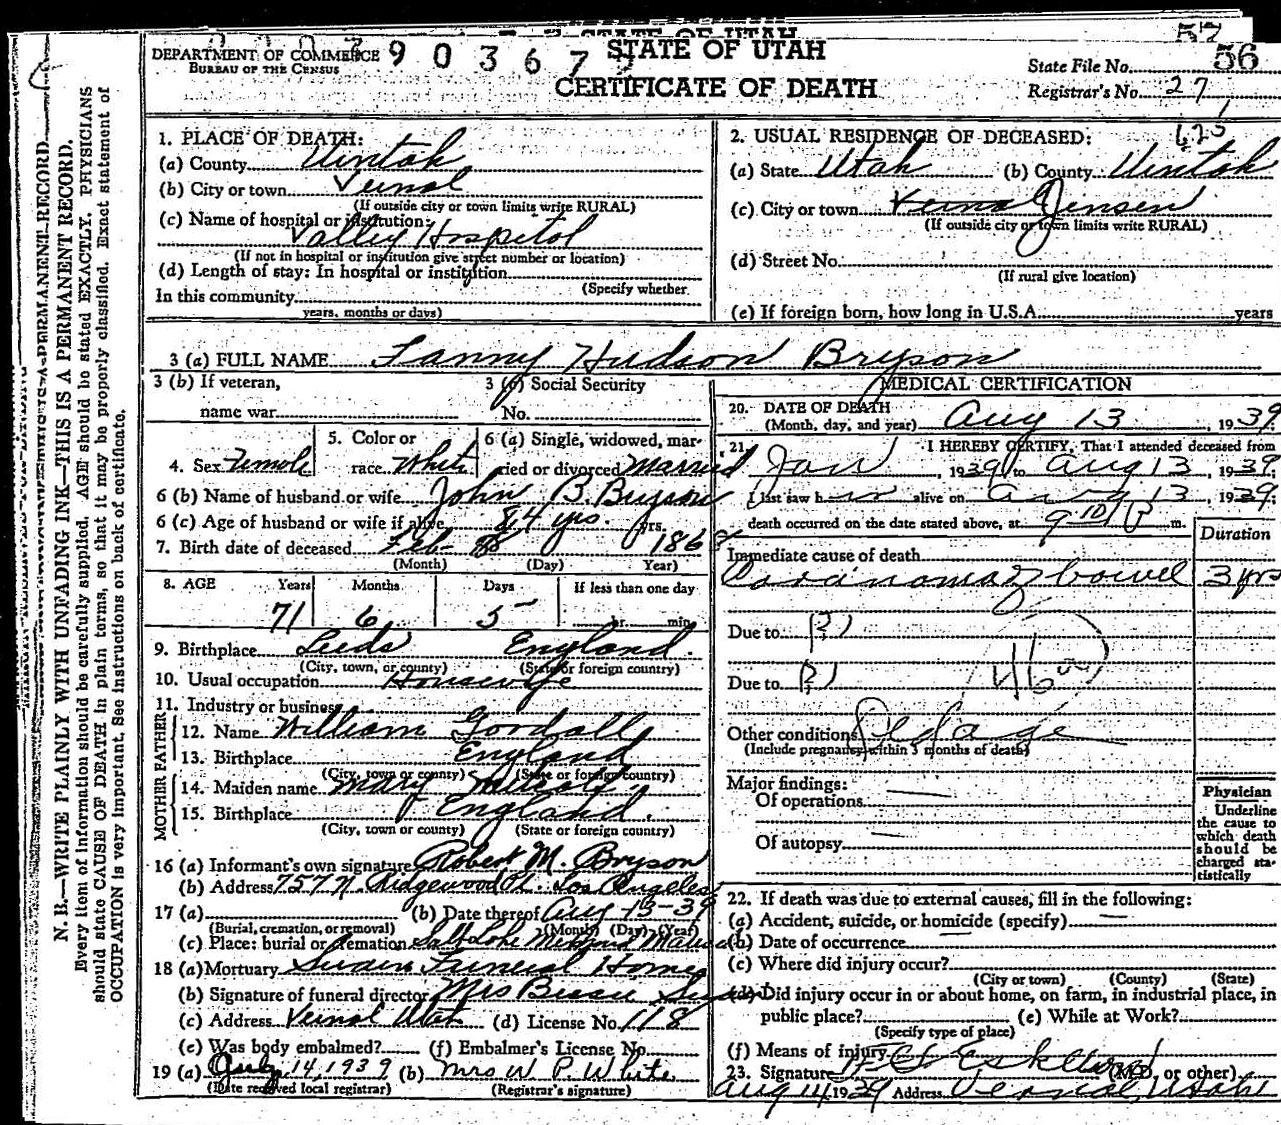 STATE OF UTAH
57
DEPARTMENT OF COMMERCE 9 0 3 6 7 STATE OF UTAH
BUREAU OF THE CENSUS
CERTIFICATE OF DEATH
State File No. 56
Registrar's No. 27
625
1. PLACE OF DEATH:
(a) County Uintah
(b) City or town Vernal
(If outside city or town limits write RURAL)
(c) Name of hospital or institution:
Valley Hospital
(If not in hospital or institution give street number or location)
(d) Length of stay: In hospital or institution
(Specify whether
In this community
years, months or days)
2. USUAL RESIDENCE OF DECEASED:
(a) State Utah (b) County Uintah
(c) City or town Vernal Jensen
(If outside city or town limits write RURAL)
(d) Street No.
(If rural give location)
(e) If foreign born, how long in U.S.A. years
3 (a) FULL NAME Fanny Hudson Bryson
3 (b) If veteran,
name war
3 (c) Social Security
No.
4. Sex Female
5. Color or
race White
6 (a) Single, widowed, mar-
ried or divorced Married
6 (b) Name of husband or wife John B. Bryson
6 (c) Age of husband or wife if alive 84 yrs. yrs.
7. Birth date of deceased Feb 8 1868
(Month) (Day) Year)
8. AGE Years Months Days If less than one day
71 6 5 hr. min.
9. Birthplace Leeds England.
(City, town, or county) (State or foreign country)
10. Usual occupation Housewife
11. Industry or business
FATHER
12. Name William Goodall
13. Birthplace England
(City, town or county) (State or foreign country)
MOTHER
14. Maiden name Mary
15. Birthplace England.
(City, town or county) (State or foreign country)
16 (a) Informant's own signature Robert M. Bryson
(b) Address 757 N. Ridgewood Pl. Los Angeles
17 (a) (b) Date thereof Aug 15-39
(Burial, cremation, or removal) (Month) (Day) (Year)
(c) Place: burial or cremation Salt Lake
18 (a) Mortuary Swain Funeral Home
(b) Signature of funeral director Mrs Bessie Swain
(c) Address Vernal Utah (d) License No. 118
(e) Was body embalmed? (f) Embalmer's License No.
19 (a) Aug 14, 1939 (b) Mrs W. P. White
(Date received local registrar) (Registrar's signature)
MEDICAL CERTIFICATION
20. DATE OF DEATH
(Month, day, and year) Aug 13, 1939.
21. I HEREBY CERTIFY, That I attended deceased from
Jan, 1939 to Aug 13, 1939
I last saw h er alive on Aug 13, 1939;
death occurred on the date stated above, at 9 10 P m.
Duration
Immediate cause of death
Carcinoma of bowel 3 yrs
Due to (?)
Due to (?)
46
Other conditions Old age
(Include pregnancy within 3 months of death)
Major findings:
Of operations —
Of autopsy —
Physician
Underline
the cause to
which death
should be
charged sta-
tistically
22. If death was due to external causes, fill in the following:
(a) Accident, suicide, or homicide (specify) —
(b) Date of occurrence
(c) Where did injury occur?
(City or town) (County) (State)
(d) Did injury occur in or about home, on farm, in industrial place, in
public place? (e) While at Work?
(Specify type of place)
(f) Means of injury
23. Signature (M.D. or other)
Aug 14, 1939 Address Vernal, Utah
N. B.—WRITE PLAINLY WITH UNFADING INK—THIS IS A PERMANENT RECORD.
Every item of information should be carefully supplied. AGE should be stated EXACTLY. PHYSICIANS
should state CAUSE OF DEATH in plain terms, so that it may be properly classified. Exact statement of
OCCUPATION is very important. See instructions on back of certificate.